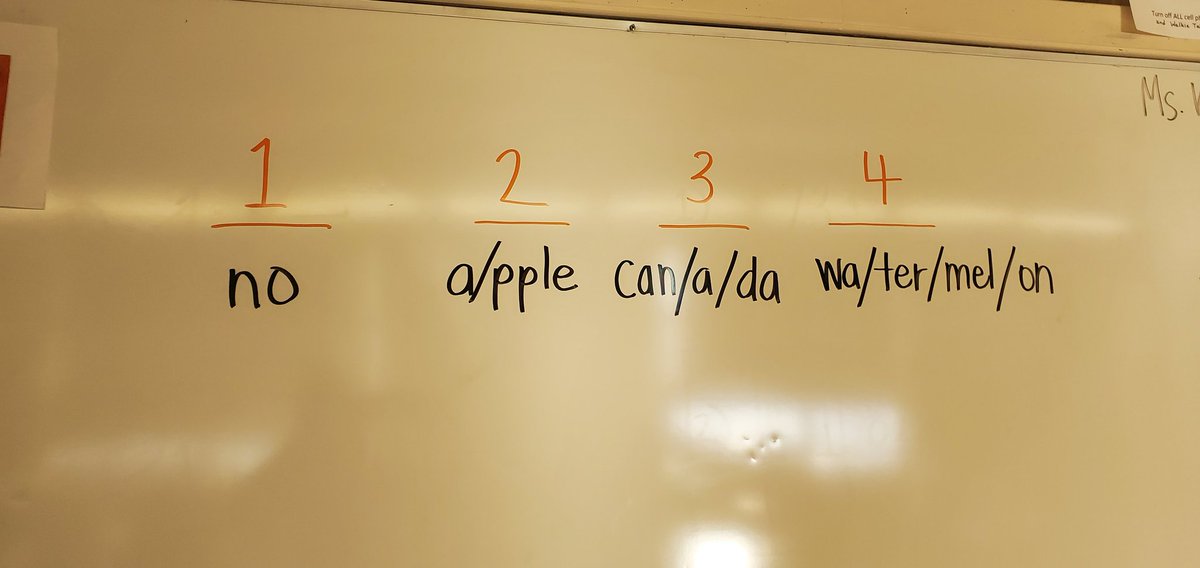 Turn off ALL cell
and Walkie
Ms.
1 2 3 4
no a/pple can/a/da wa/ter/mel/on